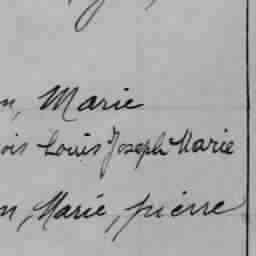 n, Marie
ois Louis Joseph Marie
n, Marie, pierre